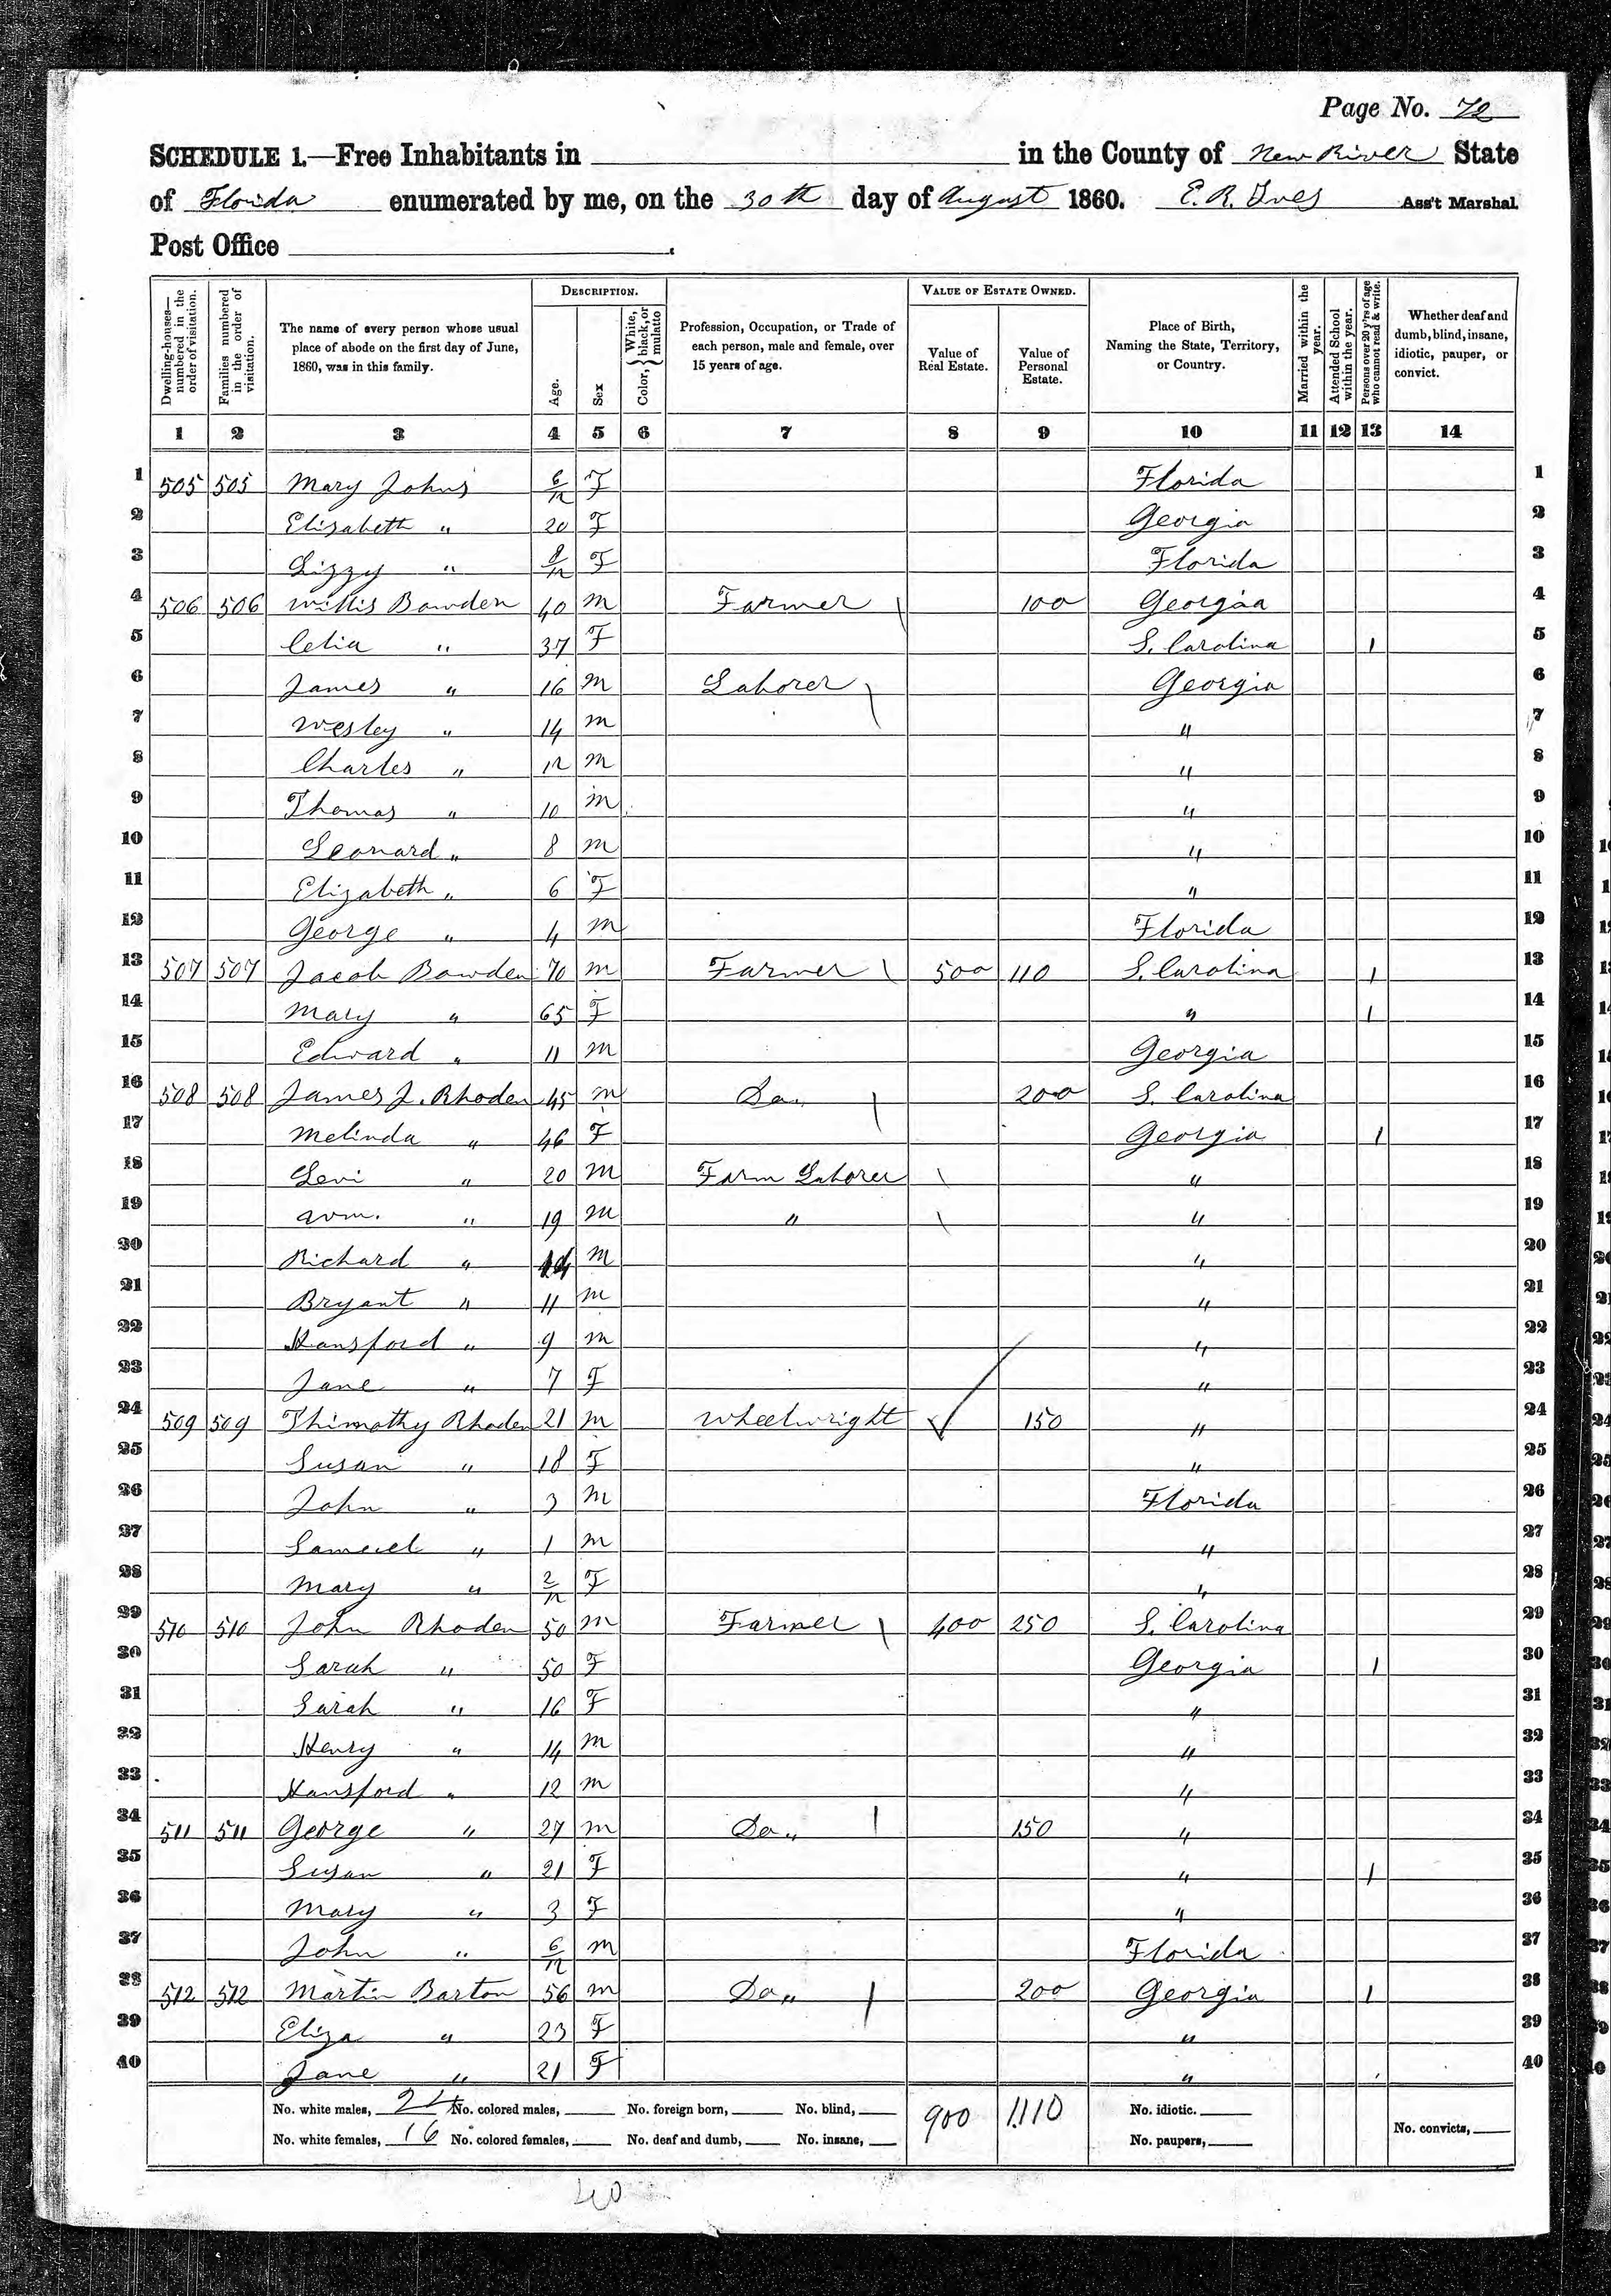 Page No. 72
SCHEDULE 1.—Free Inhabitants in in the County of New River State
of Florida enumerated by me, on the 30th day of August 1860. E. R. Ives Ass't Marshal.
Post Office .
Dwelling-houses—numbered in the order of visitation. Families numbered in the order of visitation. The name of every person whose usual place of abode on the first day of June, 1860, was in this family. DESCRIPTION. Age. Sex Color, White, black, or mulatto Profession, Occupation, or Trade of each person, male and female, over 15 years of age. VALUE OF ESTATE OWNED. Value of Real Estate. Value of Personal Estate. Place of Birth, Naming the State, Territory, or Country. Married within the year. Attended School within the year. Persons over 20 y'rs of age who cannot read & write. Whether deaf and dumb, blind, insane, idiotic, pauper, or convict.
1 2 3 4 5 6 7 8 9 10 11 12 13 14
1 505 505 Mary Johns 6/12 F Florida 1
2 Elizabeth " 20 F Georgia 2
3 Lizzy " 8/12 F Florida 3
4 506 506 Willis Bowden 40 m Farmer 100 Georgia 4
5 Celia " 37 F S. Carolina 1 5
6 James " 16 m Laborer Georgia 6
7 Wesley " 14 m " 7
8 Charles " 12 m " 8
9 Thomas " 10 m " 9
10 Leonard " 8 m " 10
11 Elizabeth " 6 F " 11
12 George " 4 m Florida 12
13 507 507 Jacob Bowden 70 m Farmer 500 110 S. Carolina 1 13
14 Mary " 65 F " 1 14
15 Edward " 11 m Georgia 15
16 508 508 James J. Rhoden 45 m Do " 200 S. Carolina 16
17 Melinda " 46 F Georgia 1 17
18 Levi " 20 m Farm Laborer " 18
19 Wm. " 19 m " " 19
20 Richard " 14 m " 20
21 Bryant " 11 m " 21
22 Hansford " 9 m " 22
23 Jane " 7 F " 23
24 509 509 Thimothy Rhoden 21 m Wheelwright 150 " 24
25 Susan " 18 F " 25
26 John " 3 m Florida 26
27 Samuel " 1 m " 27
28 Mary " 2/12 F " 28
29 510 510 John Rhoden 50 m Farmer 400 250 S. Carolina 29
30 Sarah " 50 F Georgia 1 30
31 Sarah " 16 F " 31
32 Henry " 14 m " 32
33 Hansford " 12 m " 33
34 511 511 George " 27 m Do " 150 " 34
35 Susan " 21 F " 1 35
36 Mary " 3 F " 36
37 John " 6/12 m Florida 37
38 512 512 Martin Barton 56 m Do " 200 Georgia 1 38
39 Eliza " 23 F " 39
40 Jane " 21 F " 40
No. white males, 24 No. colored males, No. foreign born, No. blind, 900 1,110 No. idiotic.
No. white females, 16 No. colored females, No. deaf and dumb, No. insane, No. paupers, No. convicts,
40